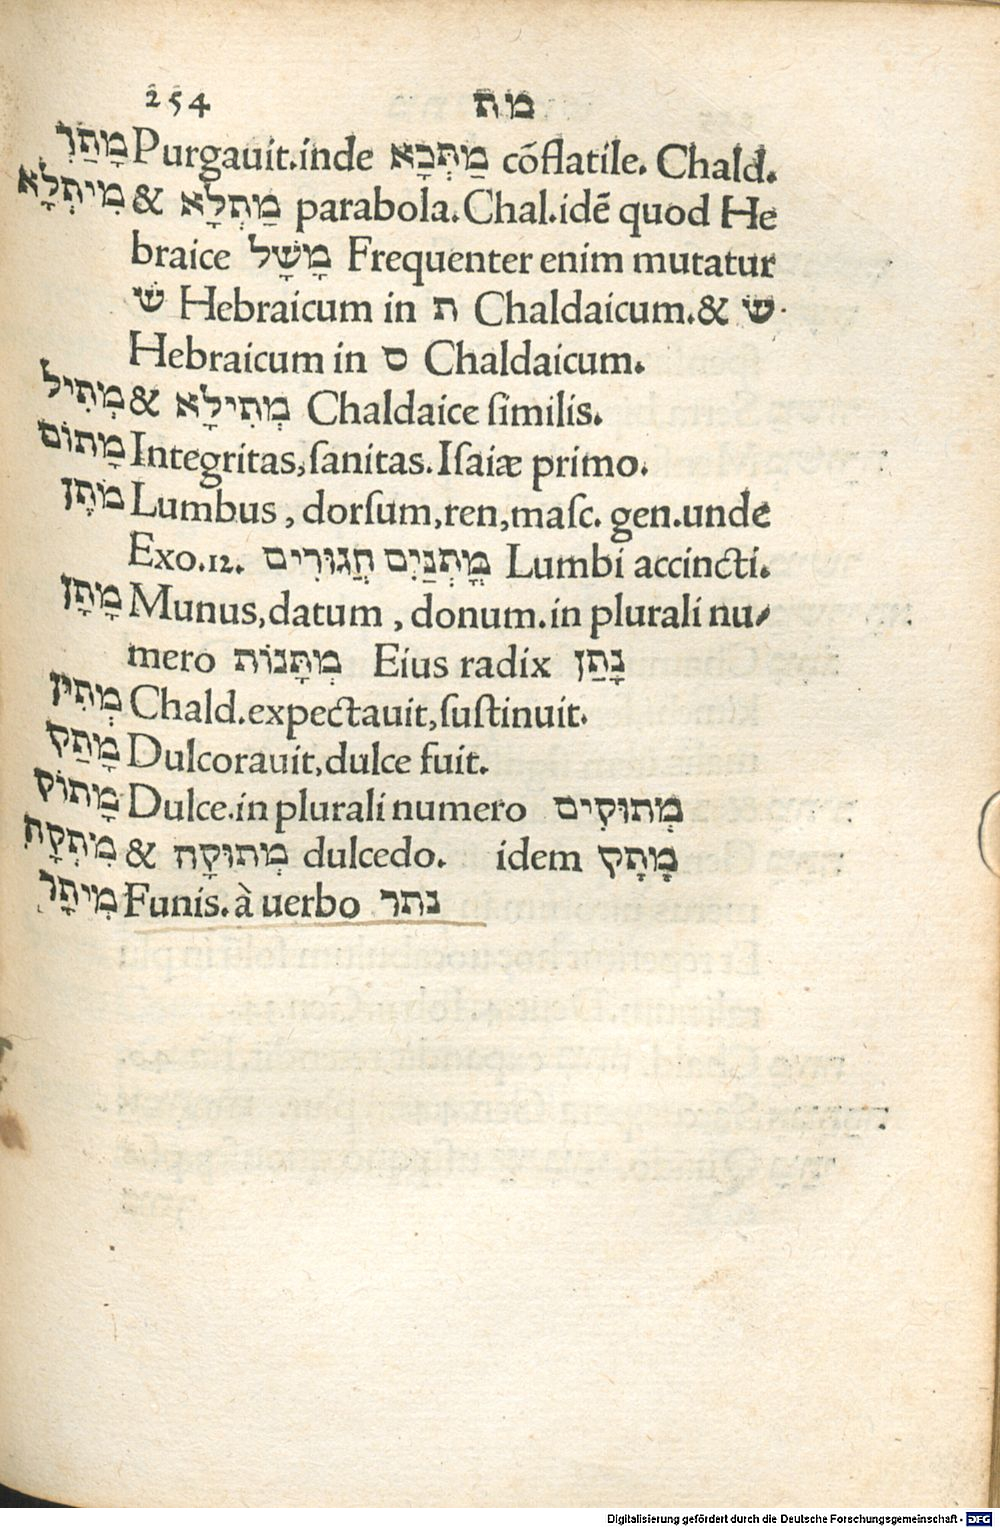 254 מת
מָתַךְ Purgauit.inde מַתְּכָא cõflatile. Chald.
מִיתְלָא & מַתְלָא parabola.Chal.idẽ quod He
braice מָשָׁל Frequenter enim mutatur
שׁ Hebraicum in ת Chaldaicum.& שׂ
Hebraicum in ס Chaldaicum.
מְתִיל & מְתִילָא Chaldaice ſimilis.
מָתוֹם Integritas,ſanitas.Iſaiæ primo.
מֹתֶן Lumbus , dorſum,ren,maſc. gen.unde
Exo.12. מָתְנַיִם חֲגוּרִים Lumbi accincti.
מָתָן Munus,datum , donum.in plurali nu-
mero מְתָּנוֹת Eius radix נָתַן
מְתִין Chald.expectauit,ſuſtinuit.
מָתַק Dulcorauit,dulce fuit.
מָתוֹק Dulce.in plurali numero מְתוּקִים
מִתְקָה & מְתוּקָה dulcedo. idem מָתָק
מִיתָר Funis.à uerbo נתר
Digitalisierung gefördert durch die Deutsche Forschungsgemeinschaft - DFG